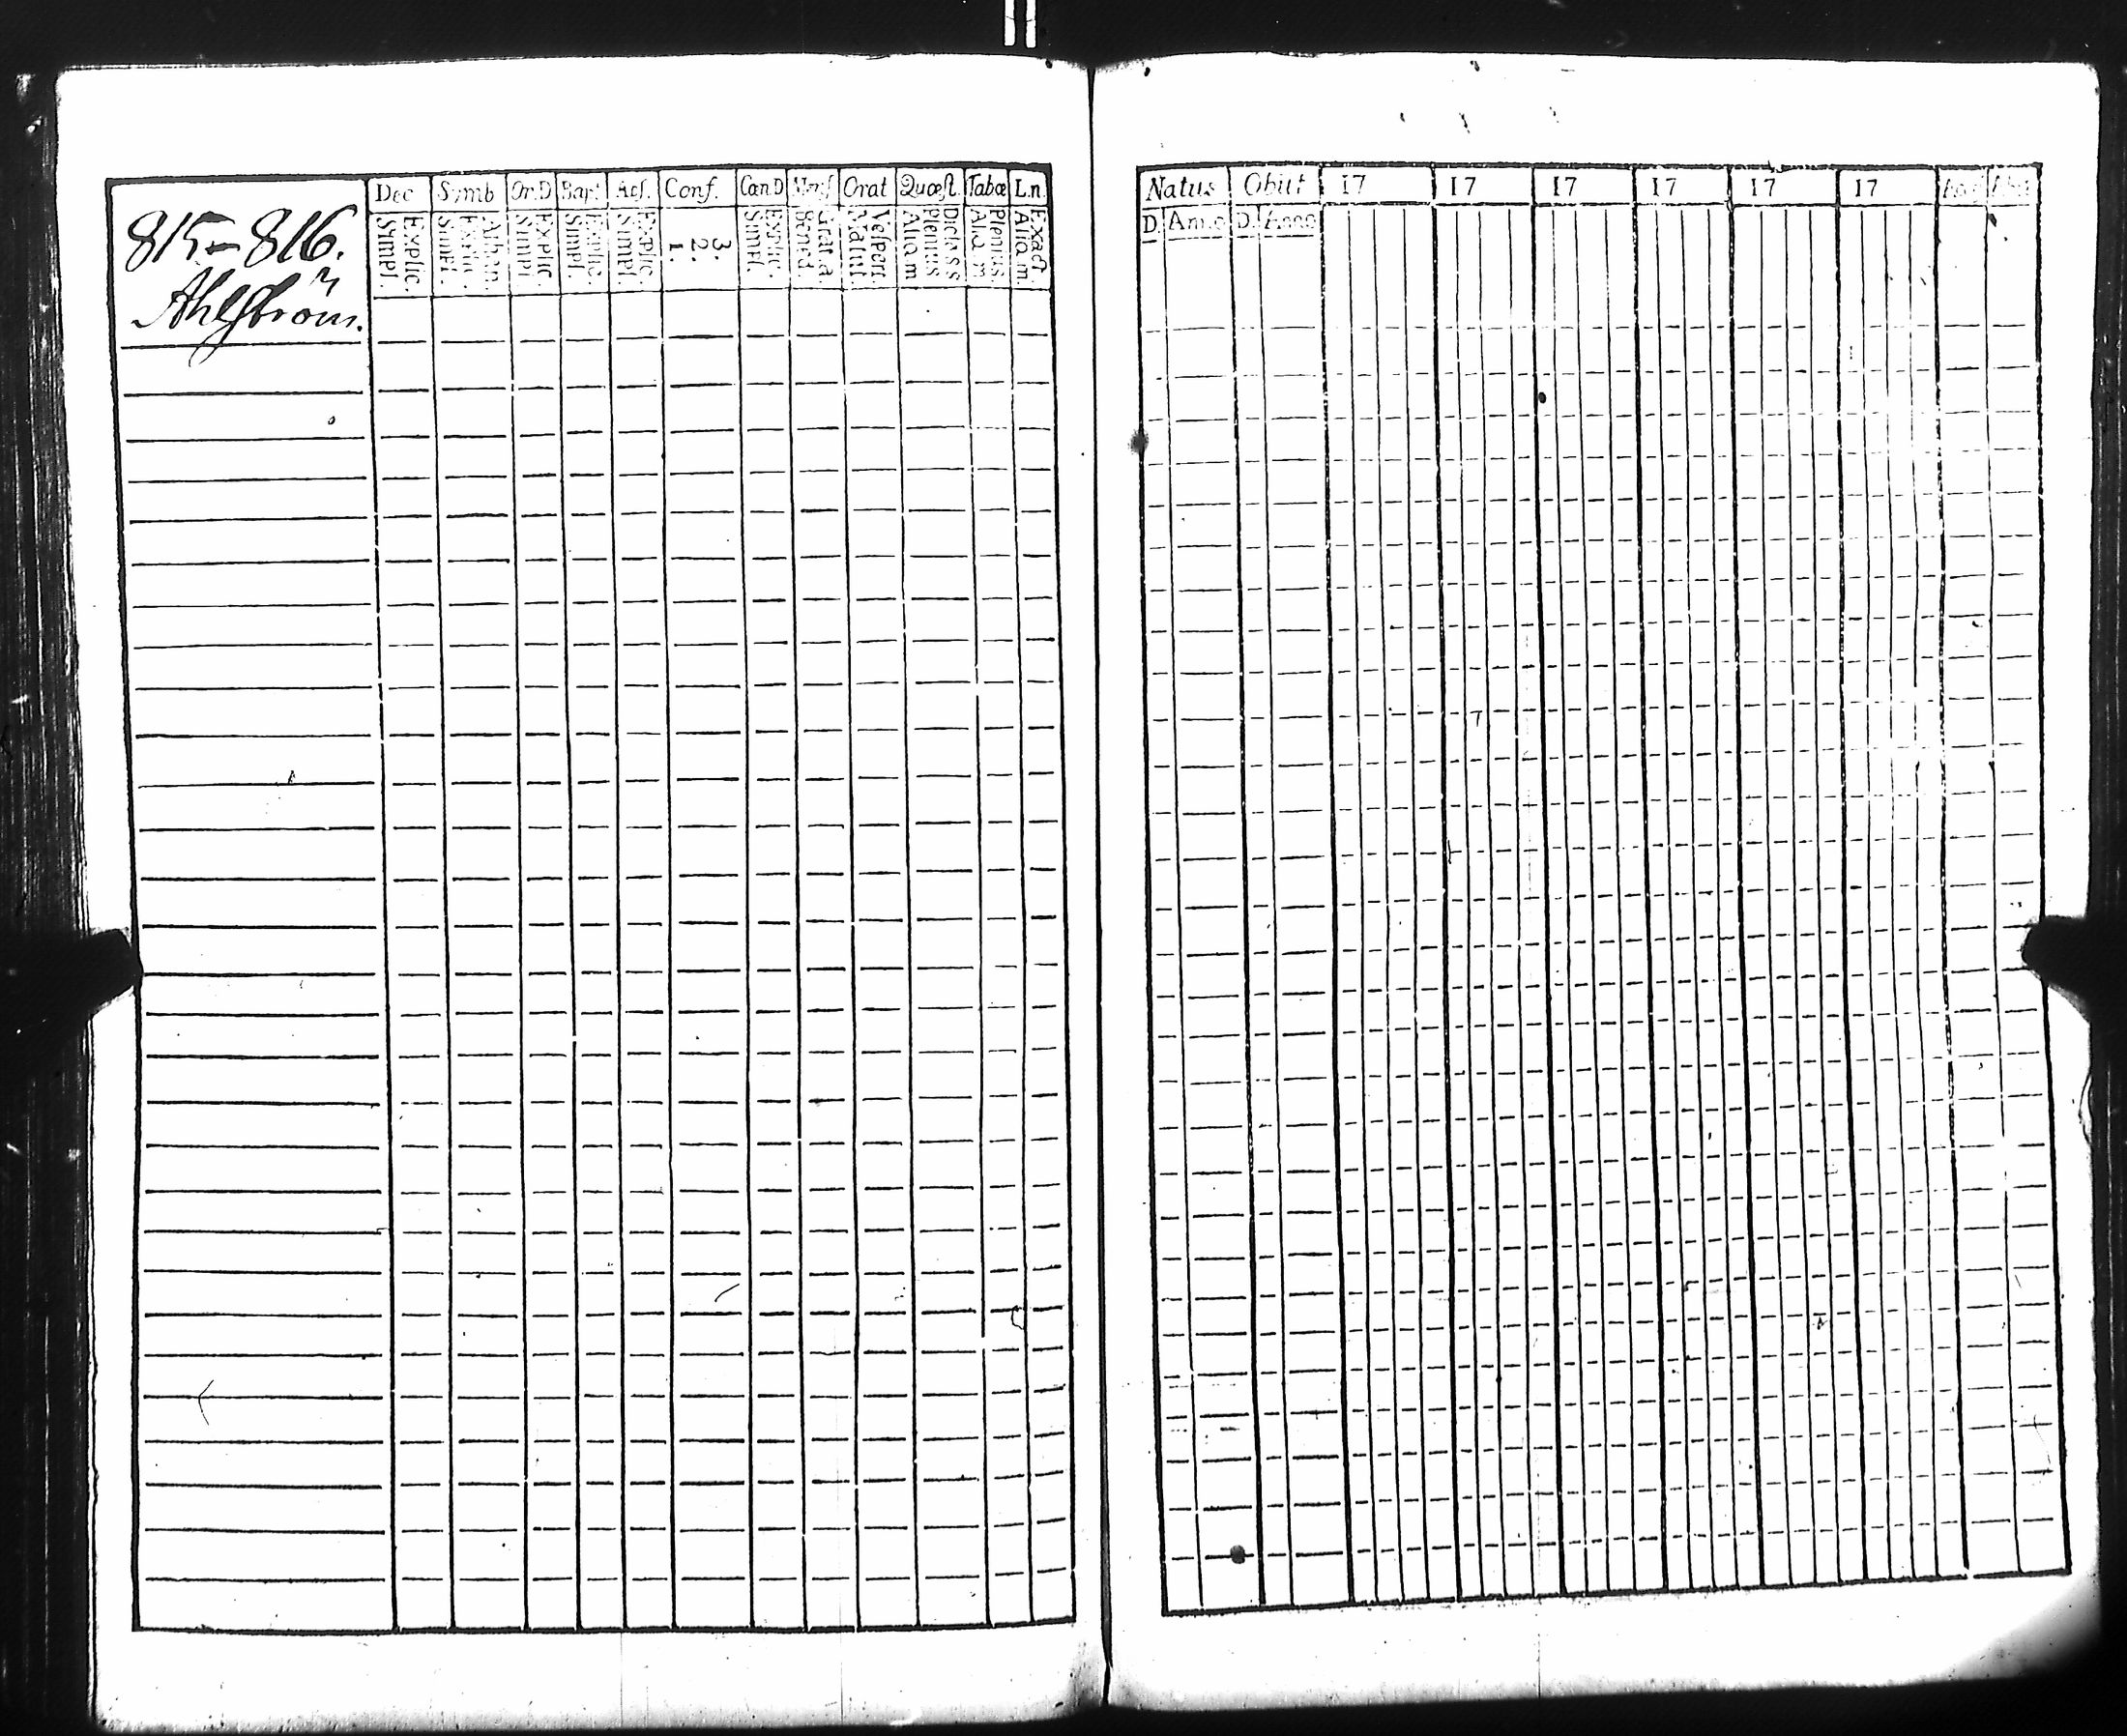 Dec Symb Or.D Bapt Abs. Conf. Cœn.D Menſ Orat Quœſt. Tabœ L.n
Explic. Simpl. Athan. Explic. Simpl. Explic. Simpl. Explic. Simpl. Explic. Simpl. 3. 2. 1. Explic. Simpl. Grat.a. Bened. Veſpert. Matut. Dictas s Plenius Aliq m Plenius. Aliq m. Exact. Aliq m.
815-816.
Ahlſtröm.
Natus Obiit 17 17 17 17 17 17
D. Anno D. Anno